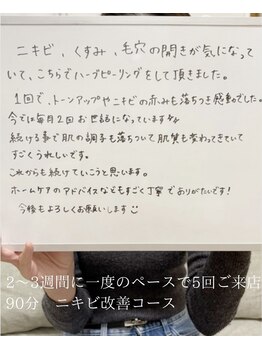 ニキビ、くすみ、毛穴の開きが気になって
いて、こちらでハーブピーリングをして頂きました。
1回で、トーンアップやニキビの赤みも落ちつき感動でした。
今では毎月2回お世話になっています
続ける事で肌の調子も落ちついて肌質も変わってきていて
すごくうれしいです。
これからも続けていこうと思います。
ホームケアのアドバイスなどもすごく丁寧でありがたいです!
今後もよろしくお願いします
2〜3週間に一度のペースで5回ご来店
90分 ニキビ改善コース